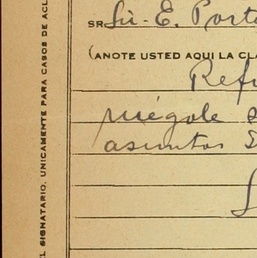 SR. Lic. E. Porte
(ANOTE USTED AQUI LA CLA
Refi
ruégole s
asuntos
EL SIGNATARIO, UNICAMENTE PARA CASOS DE ACL